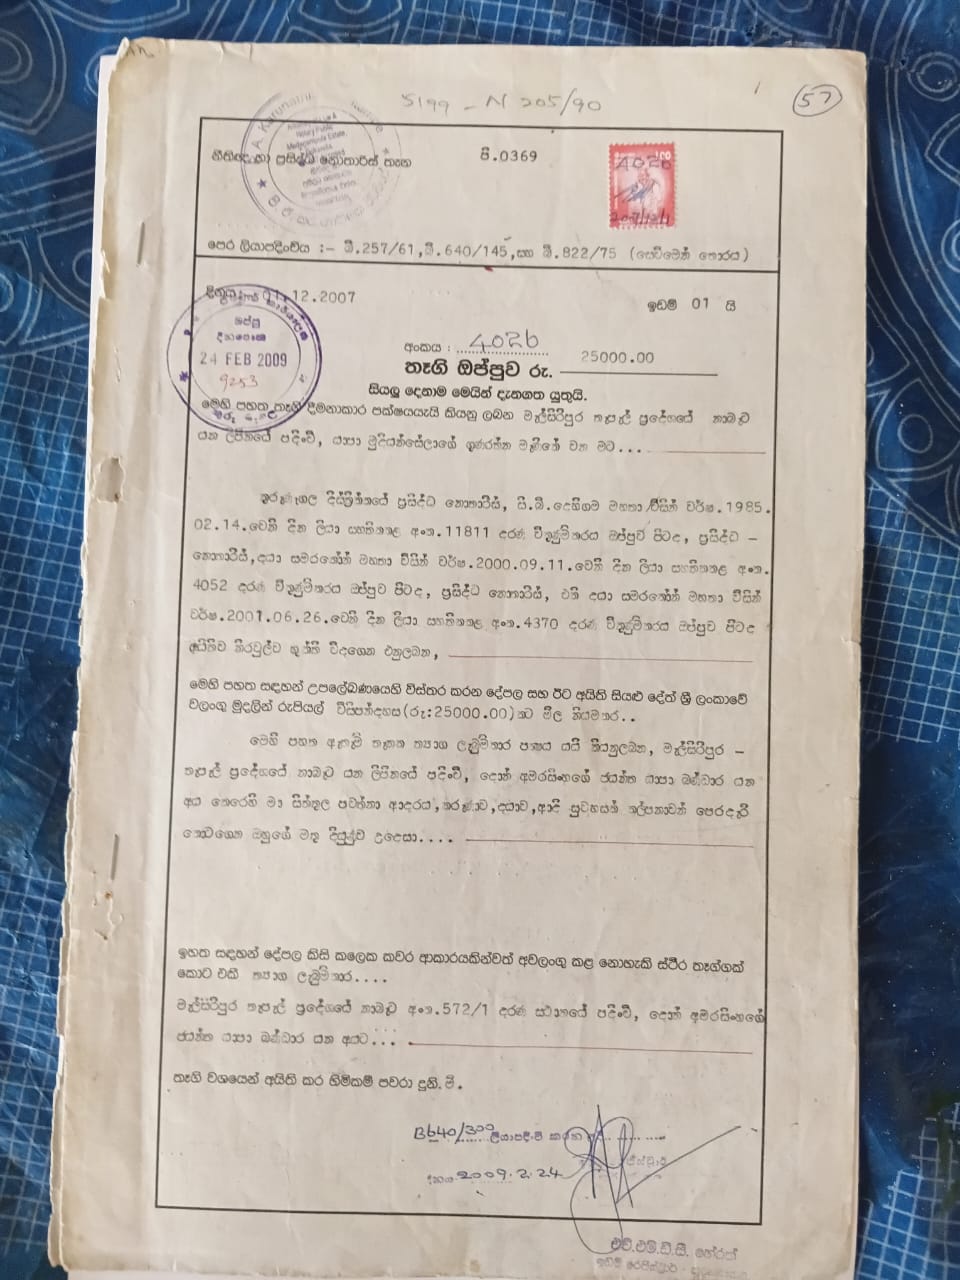 5199 - N 205/90
57
A. Karunatil
Attorney-at-Law &
Notary Public
නීතිඥ හා ප්‍රසිද්ධ නොතාරිස් තැන
පී.0369
4026
පෙර ලියාපදිංචිය :- බී.257/61,බී.640/145,සහ බී.822/75 (සෙවීමෙන් තොරය)
දිනය 01.12.2007
ඉඩම් 01 යි
ඔප්පු
24 FEB 2009
9253
අංකය : 4026
තෑගි ඔප්පුව රු. 25000.00
සියලු දෙනාම මෙයින් දැනගත යුතුයි.
මෙහි පහත තෑගි දීමනාකාර පක්ෂයයැයි කියනු ලබන මැල්සිරිපුර තැපැල් ප්‍රදේශයේ නාබැට
යන ලිපිනයේ පදිංචි, යාපා මුදියන්සේලාගේ ගුණරත්න මැණිකේ වන මට...
කුරුණෑගල දිස්ත්‍රික්කයේ ප්‍රසිද්ධ නොතාරිස්, සී.බී.දෙහිගම මහතා විසින් වර්ෂ.1985.
02.14.වෙනි දින ලියා සහතිකකළ අංක.11811 දරණ විකුණුම්කරය ඔප්පුව පිටද, ප්‍රසිද්ධ -
නොතාරිස්,දයා සමරකෝන් මහතා විසින් වර්ෂ.2000.09.11.වෙනි දින ලියා සහතිකකළ අංක.
4052 දරණ විකුණුම්කරය ඔප්පුව පිටද, ප්‍රසිද්ධ නොතාරිස්, එකී දයා සමරකෝන් මහතා විසින්
වර්ෂ.2001.06.26.වෙනි දින ලියා සහතිකකළ අංක.4370 දරණ විකුණුම්කරය ඔප්පුව පිටද
අයිතිව නිරවුල්ව භුක්ති විඳගෙන එනුලබන,
මෙහි පහත සඳහන් උපලේඛණයෙහි විස්තර කරන දේපල සහ ඊට අයිති සියළු දේත් ශ්‍රී ලංකාවේ
වලංගු මුදලින් රුපියල් විසිපන්දහස(රු:25000.00)කට මිල නියමකර..
මෙහි පහත ඇකැම් තැනක ත්‍යාග ලැබුම්කාර පක්‍ෂය යයි කියනුලබන, මැල්සිරිපුර -
තැපැල් ප්‍රදේශයේ නාබැට යන ලිපිනයේ පදිංචි, දොන් අමරසිංහගේ ජයන්ත යාපා බණ්ඩාර යන
අය කෙරෙහි මා සිත්තුල පවත්නා ආදරය,කරුණාව,දයාව,ආදී සුවහසක් කල්පනාවන් පෙරදැරි
කොටගෙන ඔහුගේ මතු දියුණුව උදෙසා....
ඉහත සඳහන් දේපල කිසි කලෙක කවර ආකාරයකින්වත් අවලංගු කළ නොහැකි ස්ථිර තෑග්ගක්
කොට එකී ත්‍යාග ලැබුම්කාර....
මැල්සිරිපුර තැපැල් ප්‍රදේශයේ නාබැට අංක.572/1 දරණ ස්ථානයේ පදිංචි, දොන් අමරසිංහගේ
ජයන්ත යාපා බණ්ඩාර යන අයට...
තෑගි වශයෙන් අයිති කර හිමිකම් පවරා දුනි.මි.
B640/300 ලියාපදිංචි කරන ලදී
දිනය 2009.2.24
එච්.එම්.ඩී.සී. හේරත්